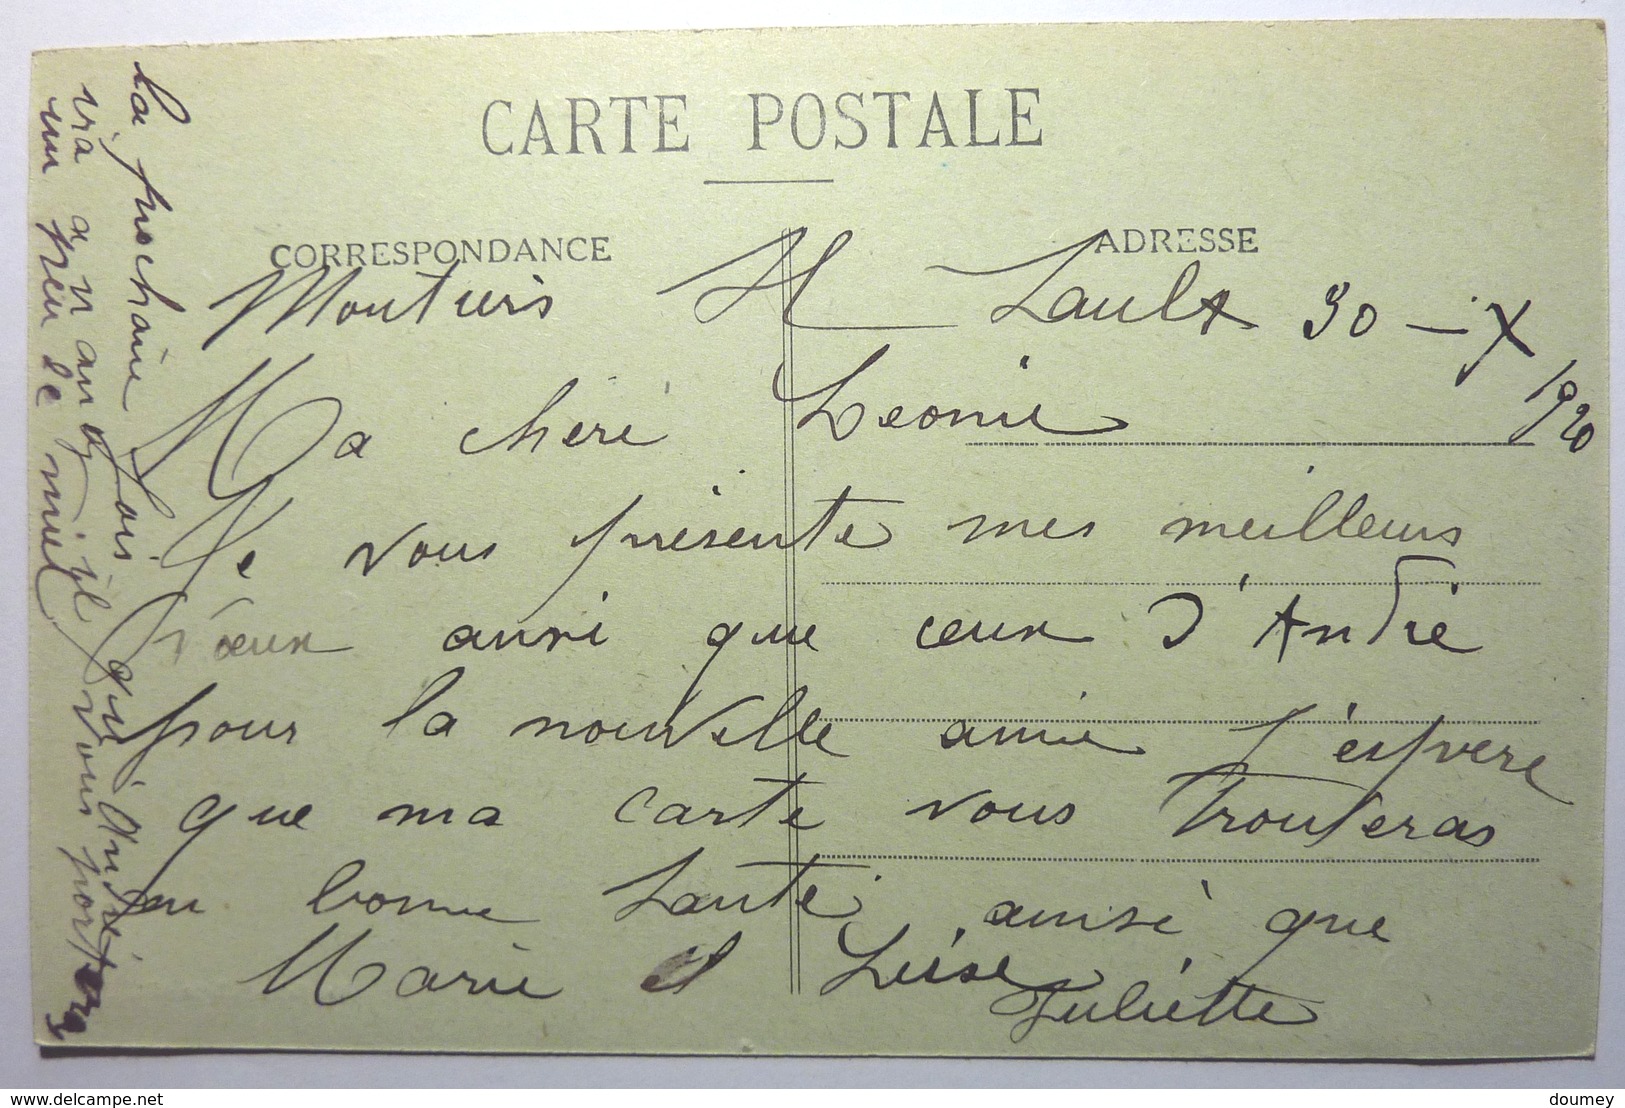 CARTE POSTALE
CORRESPONDANCE
ADRESSE
Moutiers H Sault 30 - X
1920
Ma cheré Leonie
Je vous présente mes meilleurs
vœux aussi que ceux d'André
pour la nouvelle anné J'espere
que ma carte vous trouveras
en bonne santé, ainsi que
Marie et Luise
Juliette
La prochaine fois qu' André
vía a nanay il vous porteras
un peu de miel
delcampe.net
doumey